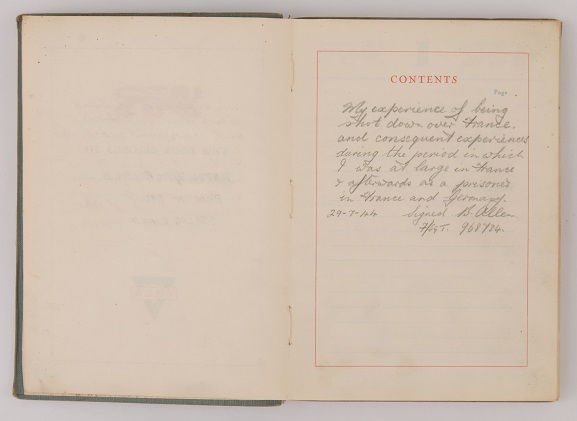 CONTENTS
Page
My experience of being
shot down over France,
and consequent experiences
during the period in which
I was at large in France
& afterwards as a prisoner
in France and Germany.
29-7-44 Signed B. Allen
F/Sgt. 968704.